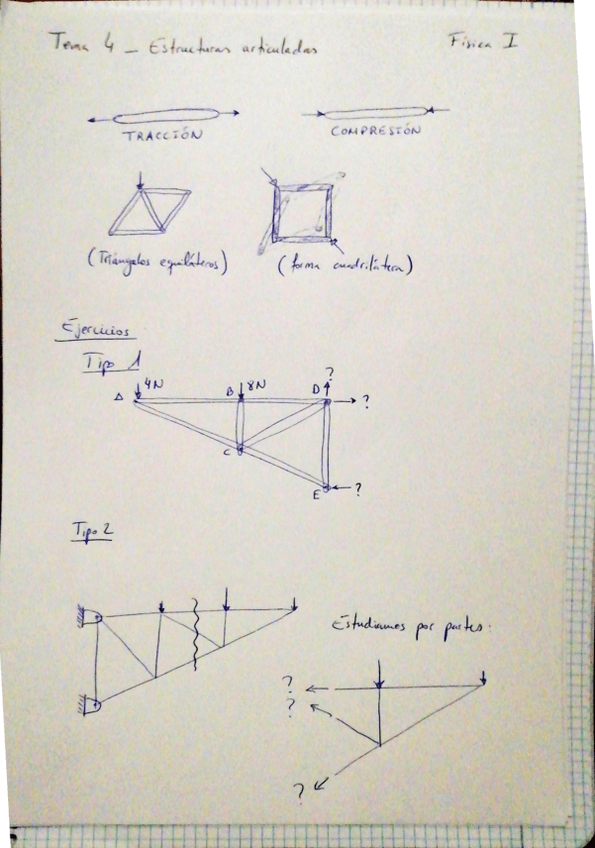 Tema 4 - Estructuras articuladas
Física I
TRACCIÓN
COMPRESIÓN
(Triángulos equiláteros)
(forma cuadrilátera)
Ejercicios
Tipo 1
A
4N
B
8N
D
?
?
C
E
?
Tipo 2
Estudiamos por partes:
?
?
?